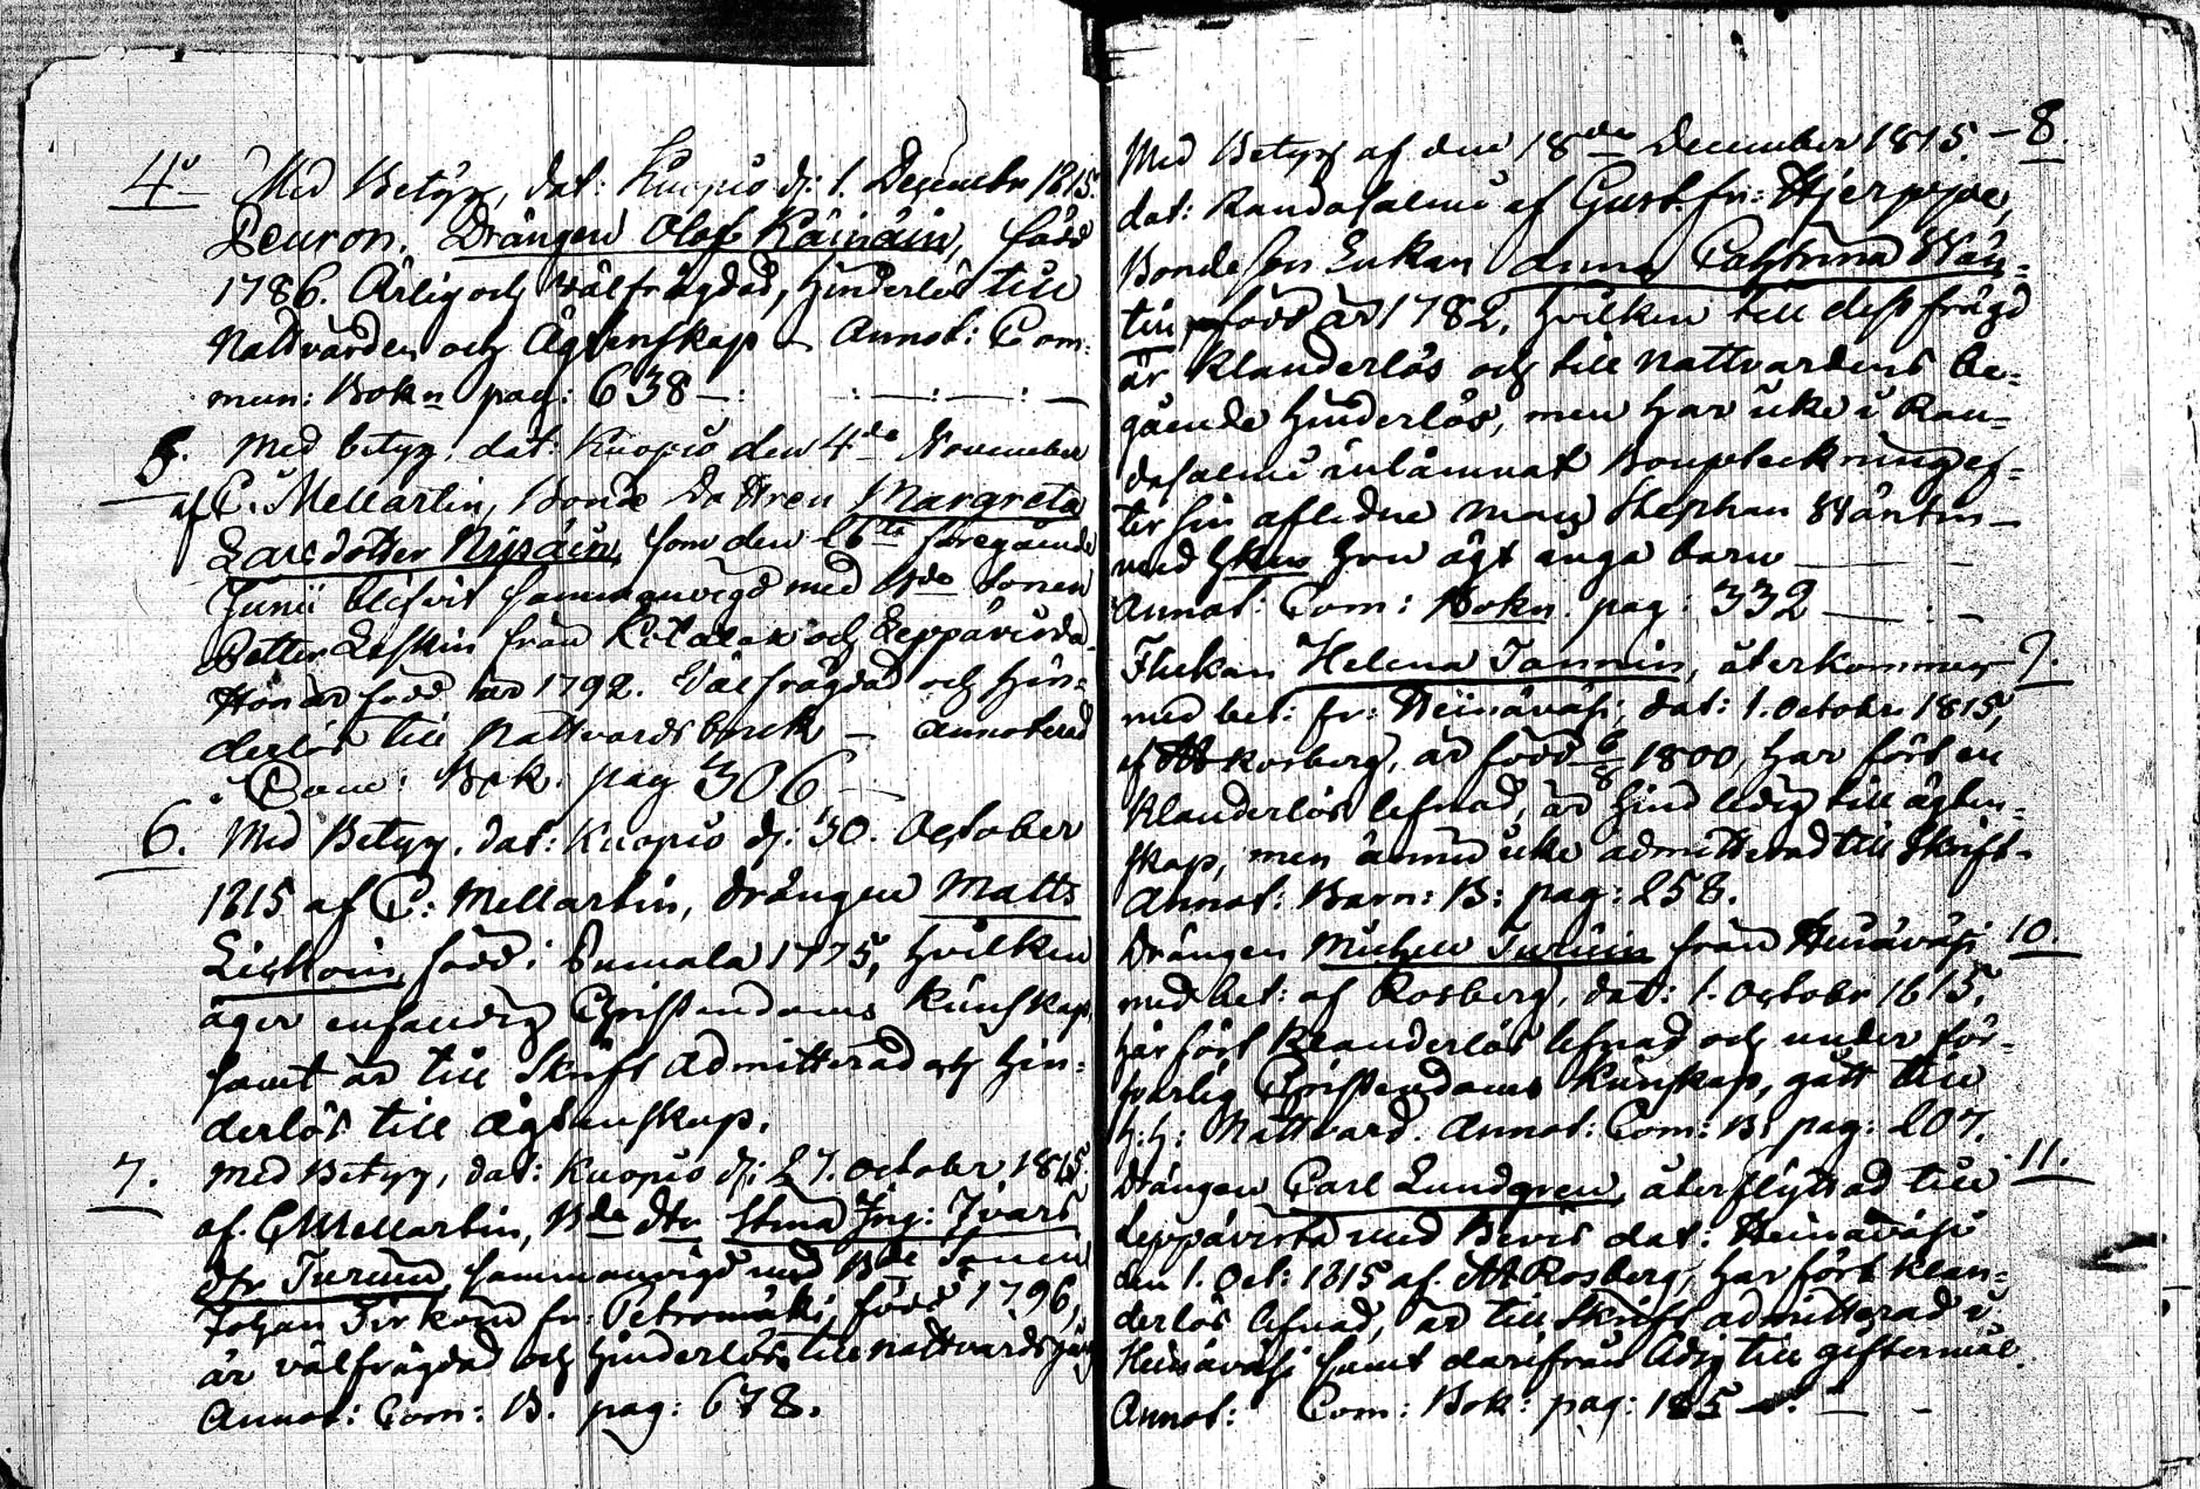 4. Med Betyg, dat: Kuopio d: 1. Decembr 1815.
Drängen Olof Räinäin, född
1786. Ärlig och Välfrägdad, hinderlös till
Nattvarden och Ägtenskap – Annot: Com-
mun: Bokn pag: 638 –:
5. Med betyg, dat: Kuopio den 4de November
af C. Mellartin, Bonde Dottren Margreta
Lars dotter, som den 16te föregående
Junii blifvit sammanvigd med Bde Sonen
Petter Leskin från och Leppävirda.
Hon är född år 1792. Välfrägdad och hin-
derlös till Nattvards bruk – Annoterad
i Com: Bok. pag 306 –
6. Med Betyg, dat: Kuopio d: 30. October
1815 af C: Mellartin, drängen Matts
född i Sumala 1775, hvilken
äger enfaldig Christendoms kunskap,
samt är till Skrift admitterad och hin-
derlös till ägtenskap.
7. Med Betyg, dat: Kuopio d: 27. octobr. 1815.
af C Mellartin, Bde dtr Stina Ing: Ivars
dtr Turuin, sammanvigd med Bde Sonen
Johan Tirkoin fr: Petromäki, född 1796,
är välfrägdad och hinderlös till nattvards gång
Annot: Com: B. pag: 678.
Med Betyg af den 18de December 1815. – 8.
dat: Randasalmi af Gust. fr: Hjerppe,
Bonde Enkan Anna Cathrina Wän-
tin född år 1782, hvilken till dess frägd
är klanderlös och till Nattvardens be-
gående hinderlös, men har icke i Ran-
dasalmi inlämnat Bouptekning ef-
ter sin aflidne man Stephan Wäntin –
med hken hon ägt inga barn –
Annot: Com: Bokn. pag: 332 –
Flickan Helena Tannin, återkommer 9.
med bet: fr: Heinäväsi, dat: 1. Octobr 1815,
af Rosberg, är född 6/8 1800, har fört en
klanderlös lefnad, är hind ledig till ägten-
skap, men ännu icke admitterad till Skrift-
Annot: Barn: B: pag: 258.
Drängen Michel Turuin från Heinäväsi 10.
med bet: af Rosberg, dat: 1. Octobr 1815.
har fört klanderlös lefnad och under för-
svarlig Christendoms kunskap, gått till
H: H: Nattvard. Annot: Com: B: pag: 207.
Drängen Carl Lundgren, återflyttad till 11.
Leppävirta med Bevis dat: Heinäväsi
den 1. Oct: 1815 af Rosberg, har fört klan-
derlös lefnad, är till Skrift admitterad i
Heinäväsi samt därifrån ledig till giftermål.
Annot: Com: Bok: pag: 185 –